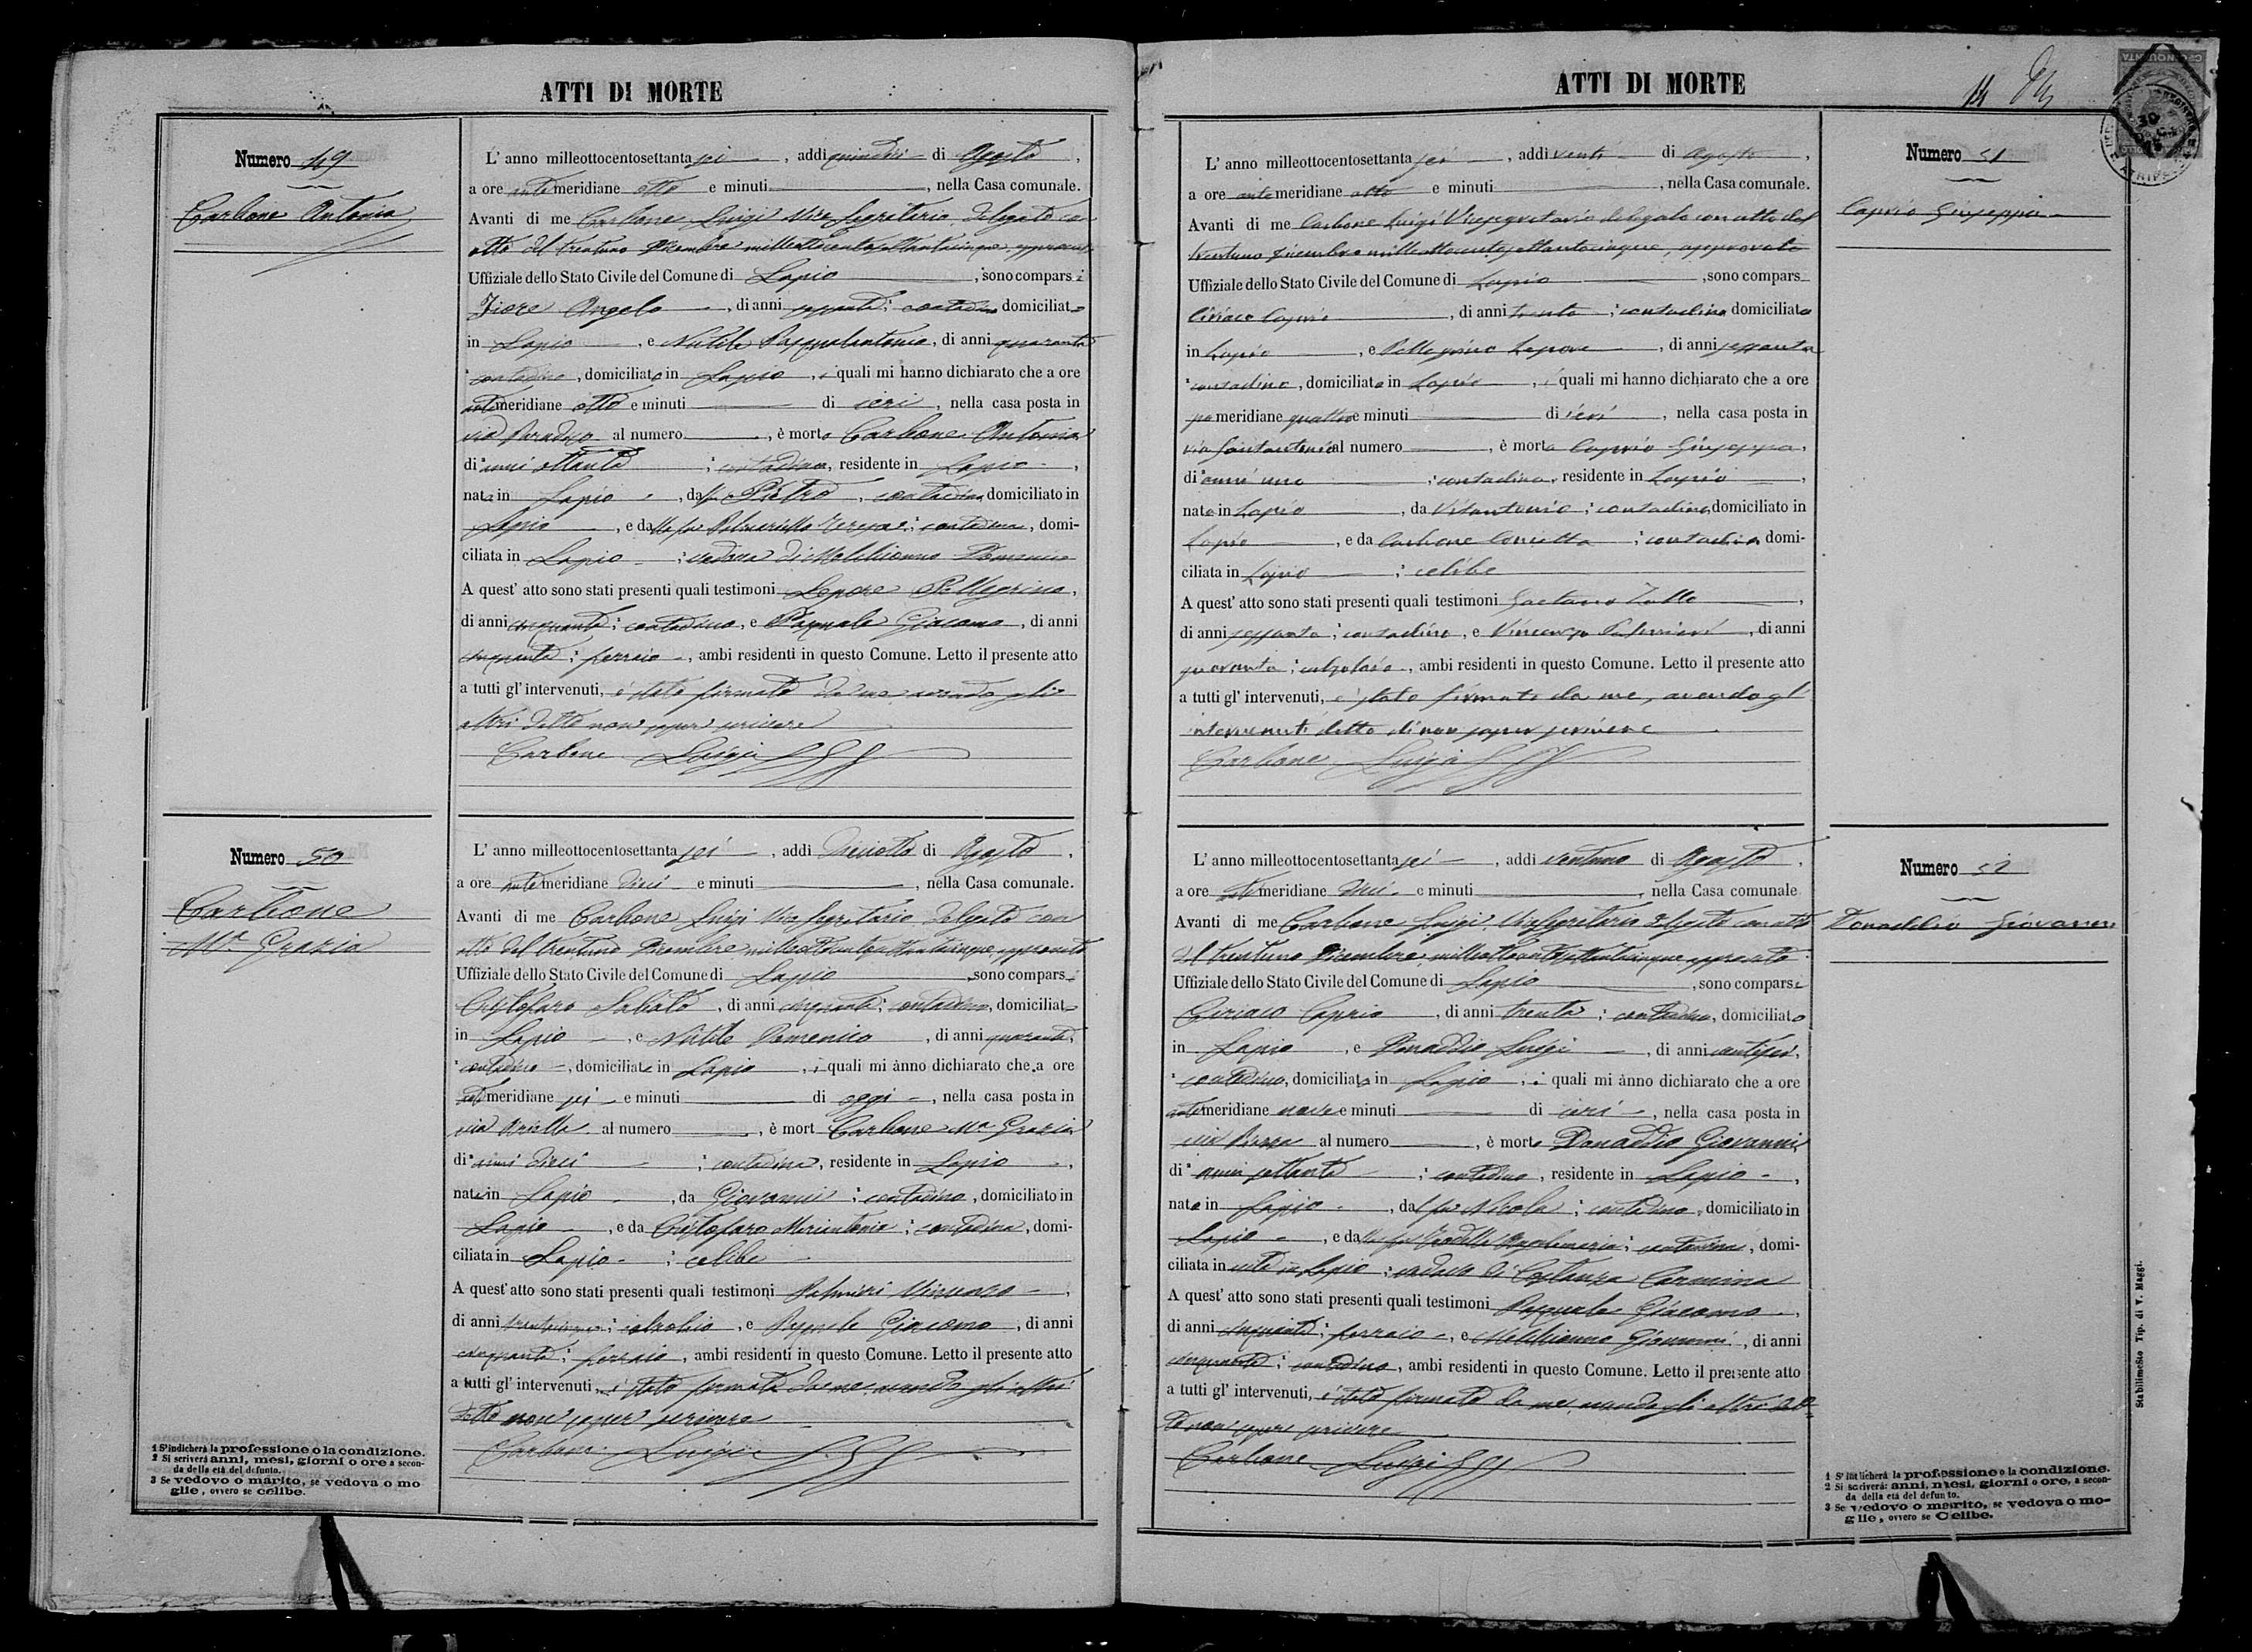 ATTI DI MORTE
Numero 49
Carbone Antonia
L' anno milleottocentosettanta sei, addi quindici di Agosto,
a ore antimeridiane otto e minuti, nella Casa comunale.
Avanti di me Carbone Luigi Vice Segretario delegato con
atto del trentuno Dicembre milleottocentosettantacinque, approvato
Uffiziale dello Stato Civile del Comune di Lapio, sono comparsi
Fiore Angelo, di anni sessanta; contadino domiciliato
in Lapio, e Nutile Pasqualantonio, di anni quaranta
contadino, domiciliato in Lapio, i quali mi hanno dichiarato che a ore
antimeridiane otto e minuti di ieri, nella casa posta in
via Paradiso al numero, è morta Carbone Antonia
di anni ottanta; contadina, residente in Lapio,
nata in Lapio, dal fu Pietro, contadino domiciliato in
Lapio, e dalla fu Palmariello Teresa; contadina, domi-
ciliata in Lapio; vedova di Melchionno Domenico
A quest' atto sono stati presenti quali testimoni Lepore Pellegrino,
di anni cinquanta; contadino, e Pasquale Giacomo, di anni
cinquanta; ferraio, ambi residenti in questo Comune. Letto il presente atto
a tutti gl' intervenuti, è stato firmato da me avendo gli
altri detto non saper scrivere
Carbone Luigi
Numero 50
Carbone
Mª Grazia
L' anno milleottocentosettanta sei, addi diciotto di Agosto,
a ore antimeridiane dieci e minuti, nella Casa comunale.
Avanti di me Carbone Luigi Vice Segretario delegato con
atto del trentuno Dicembre milleottocentosettantacinque, approvato
Uffiziale dello Stato Civile del Comune di Lapio, sono comparsi
Cristofaro Sabato, di anni cinquanta; contadino, domiciliato
in Lapio, e Nutile Domenico, di anni quaranta,
contadino, domiciliato in Lapio, i quali mi ànno dichiarato che a ore
antimeridiane sei e minuti di oggi, nella casa posta in
via al numero, è mort Carbone Mª Grazia
di anni dieci; contadina, residente in Lapio,
nata in Lapio, da Giovanni; contadino, domiciliato in
Lapio, e da Cristofaro Mariantonia; contadina, domi-
ciliata in Lapio; celibe
A quest' atto sono stati presenti quali testimoni Palmieri Vincenzo,
di anni trentacinque; calzolaio, e Pasquale Giacomo, di anni
cinquanta; ferraio, ambi residenti in questo Comune. Letto il presente atto
a tutti gl' intervenuti, è stato firmato da me avendo gli altri
detto non saper scrivere
Carbone Luigi
1 S'indicherà la professione o la condizione.
2 Si scriverà anni, mesi, giorni o ore a secon-
da della età del defunto.
3 Se vedovo o marito, se vedova o mo
glie, ovvero se celibe.
ATTI DI MORTE
14
Numero 51
Caprio Giuseppa
L' anno milleottocentosettanta sei, addi venti di Agosto,
a ore antimeridiane otto e minuti, nella Casa comunale.
Avanti di me Carbone Luigi Vicesegretario delegato con atto del
trentuno dicembre milleottocentosettantacinque, approvato
Uffiziale dello Stato Civile del Comune di Lapio, sono compars
Ciriaco Caprio, di anni trenta; contadino domiciliato
in Lapio, e Pellegrino Lepore, di anni sessanta
contadino, domiciliato in Lapio, i quali mi hanno dichiarato che a ore
pomeridiane quattro e minuti di ieri, nella casa posta in
via Santantonio al numero, è morta Caprio Giuseppa,
di anni uno; contadina, residente in Lapio,
nata in Lapio, da Vitantonio; contadino, domiciliato in
Lapio, e da Carbone Concetta; contadina domi-
ciliata in Lapio; celibe
A quest' atto sono stati presenti quali testimoni Gaetano Zollo,
di anni sessanta; contadino, e Vincenzo Palmieri, di anni
quaranta; calzolaio, ambi residenti in questo Comune. Letto il presente atto
a tutti gl' intervenuti, è stato firmato da me, avendo gl'
intervenuti detto di non saper scrivere
Carbone Luigi
Numero 52
Donaddio Giovanni
L' anno milleottocentosettanta sei, addi ventuno di Agosto,
a ore antimeridiane dieci e minuti, nella Casa comunale
Avanti di me Carbone Luigi Vicesegretario delegato con atto
del trentuno Dicembre milleottocentosettantacinque approvato
Uffiziale dello Stato Civile del Comune di Lapio, sono comparsi
Ciriaco Caprio, di anni trenta; contadino, domiciliato
in Lapio, e Donaddio Luigi, di anni ventisei,
contadino, domiciliato in Lapio, i quali mi ànno dichiarato che a ore
antimeridiane nove e minuti di ieri, nella casa posta in
via Piazza al numero, è morto Donaddio Giovanni
di anni settanta; contadino, residente in Lapio,
nato in Lapio, dal fu Nicola; contadino, domiciliato in
Lapio, e dalla fu Angelamaria; contadina, domi-
ciliata in vita in Lapio; vedovo di Costanza Carmina
A quest' atto sono stati presenti quali testimoni Pasquale Giacomo,
di anni cinquanta; ferraio, e Melchionno Giovanni, di anni
cinquanta; contadino, ambi residenti in questo Comune. Letto il presente atto
a tutti gl' intervenuti, è stato firmato da me, avendo gli altri det-
to non saper scrivere
Carbone Luigi
1 S' indicherà la professione o la condizione.
2 Si scriverà: anni, mesi, giorni o ore, a secon-
da della età del defunto.
3 Se vedovo o marito, se vedova o mo-
glie, ovvero se Celibe.
Stabilimento Tip. di V. Maggi.